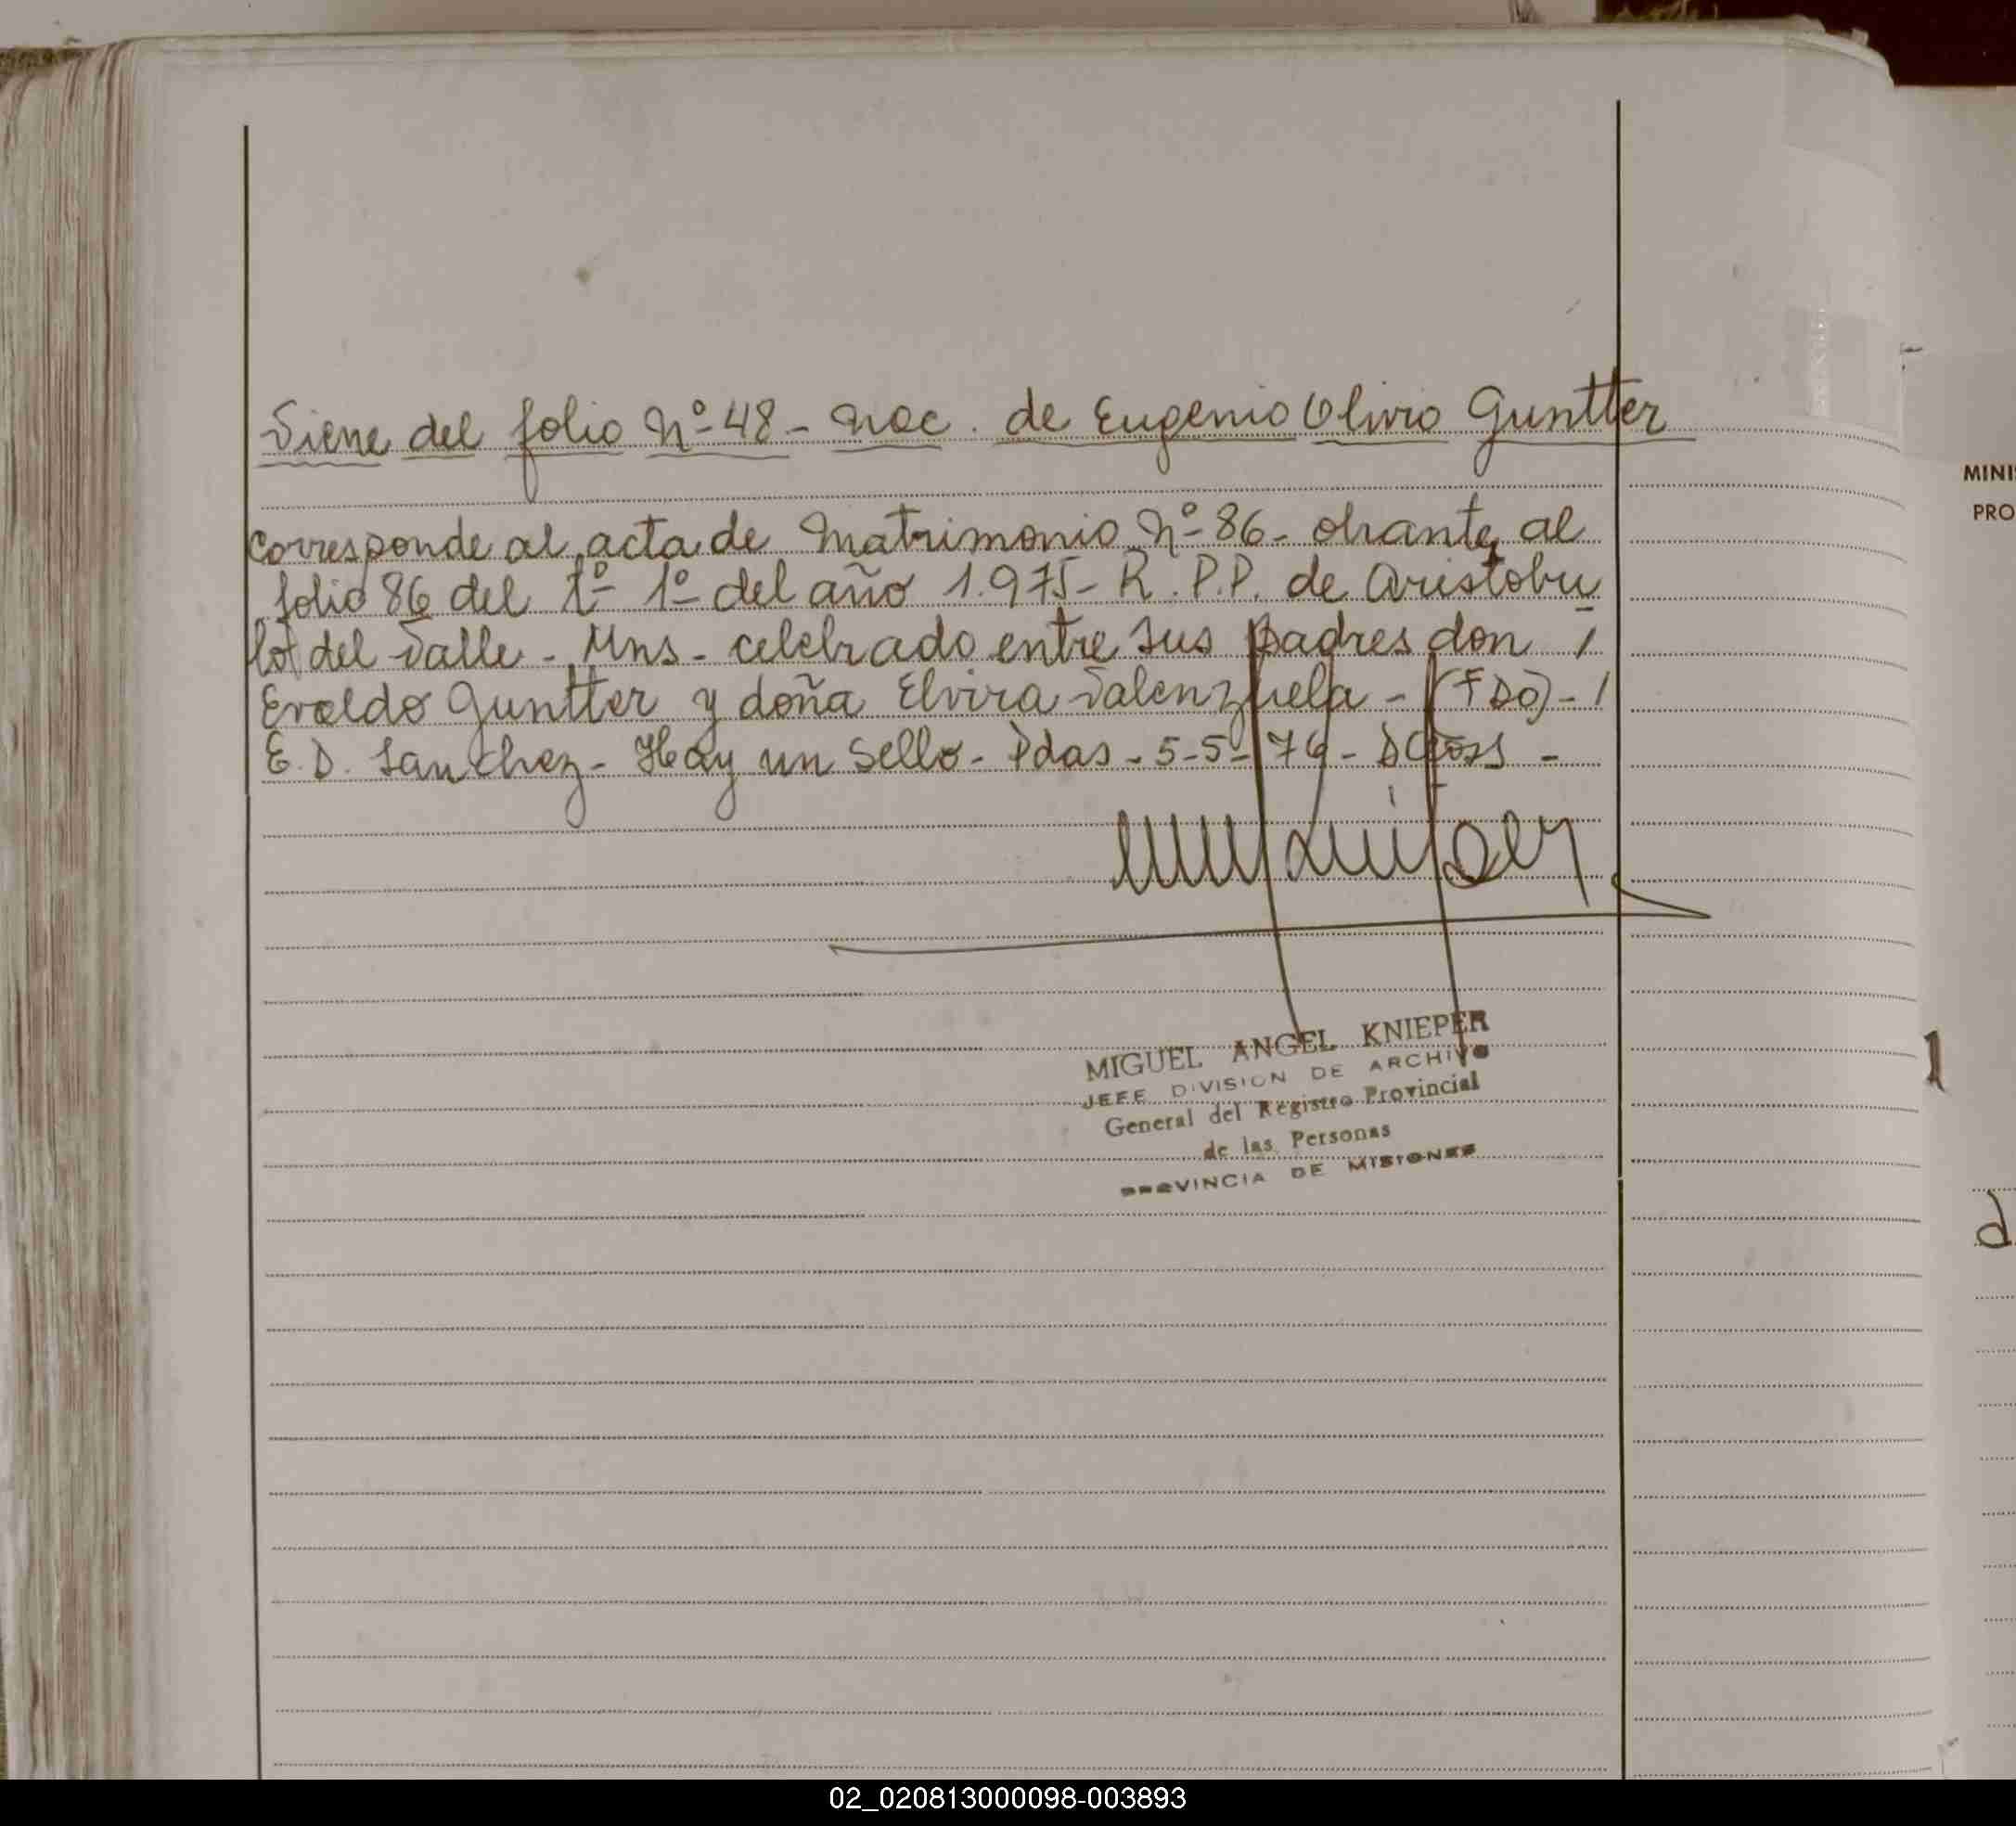 Viene del folio Nº 48 - Nac. de Eugenio Olivio Guntter
Corresponde al acta de Matrimonio Nº 86 - obrante al
folio 86 del tº 1º del año 1.975 - R.P.P. de Aristobu
lo del Valle - Mns - celebrado entre sus padres don /
Evaldo Guntter y doña Elvira Valenzuela - (FDO) - /
E. D. Sanchez - Hay un Sello - Pdas - 5-5-76 -
MIGUEL ANGEL KNIEPER
JEFE DIVISION DE ARCHIVO
General del Registro Provincial
de las Personas
PROVINCIA DE MISIONES
MINI
PRO
1
d
02_020813000098-003893